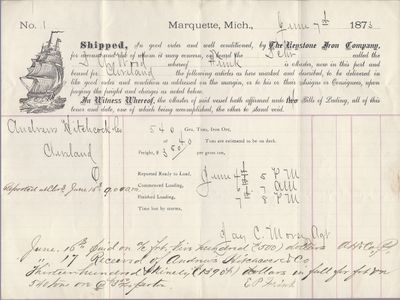 No. 1 Marquette, Mich., June 7th 1873
Shipped, In good order and well conditioned, by The Keystone Iron Company,
for account and risk of whom it may concern, on board the Schr called the
whereof Frink is Master, now in this port and
bound for Cleveland the following articles as here marked and described, to be delivered in
like good order and condition as addressed on the margin, or to his or their Assigns or Consignees, upon
paying the freight and charges as noted below.
In Witness Whereof, the Master of said vessel hath affirmed unto two Bills of Lading, all of this
tenor and date, one of which being accomplished, the other to stand void.
Andrews Hitchcock & Co
Cleveland
O
Reported at Clev. June 16th 9,00 a.m.
540 Gro. Tons, Iron Ore,
of 40 Tons are estimated to be on deck.
Freight, $ per gross ton,
Reported Ready to Load, June 6 PM
Commenced Loading, 7 AM
Finished Loading, 7 8 PM
Time lost by storms,
Jay C. Morse Agt
June, 16th Paid on % frt. five hundred (500) dollars
" 17 Received of Andrews Hitchcock & Co
Thirteen hundred & Ninety (1390) dollars in full for frt on
540 tons ore @ per ton
E P Frink